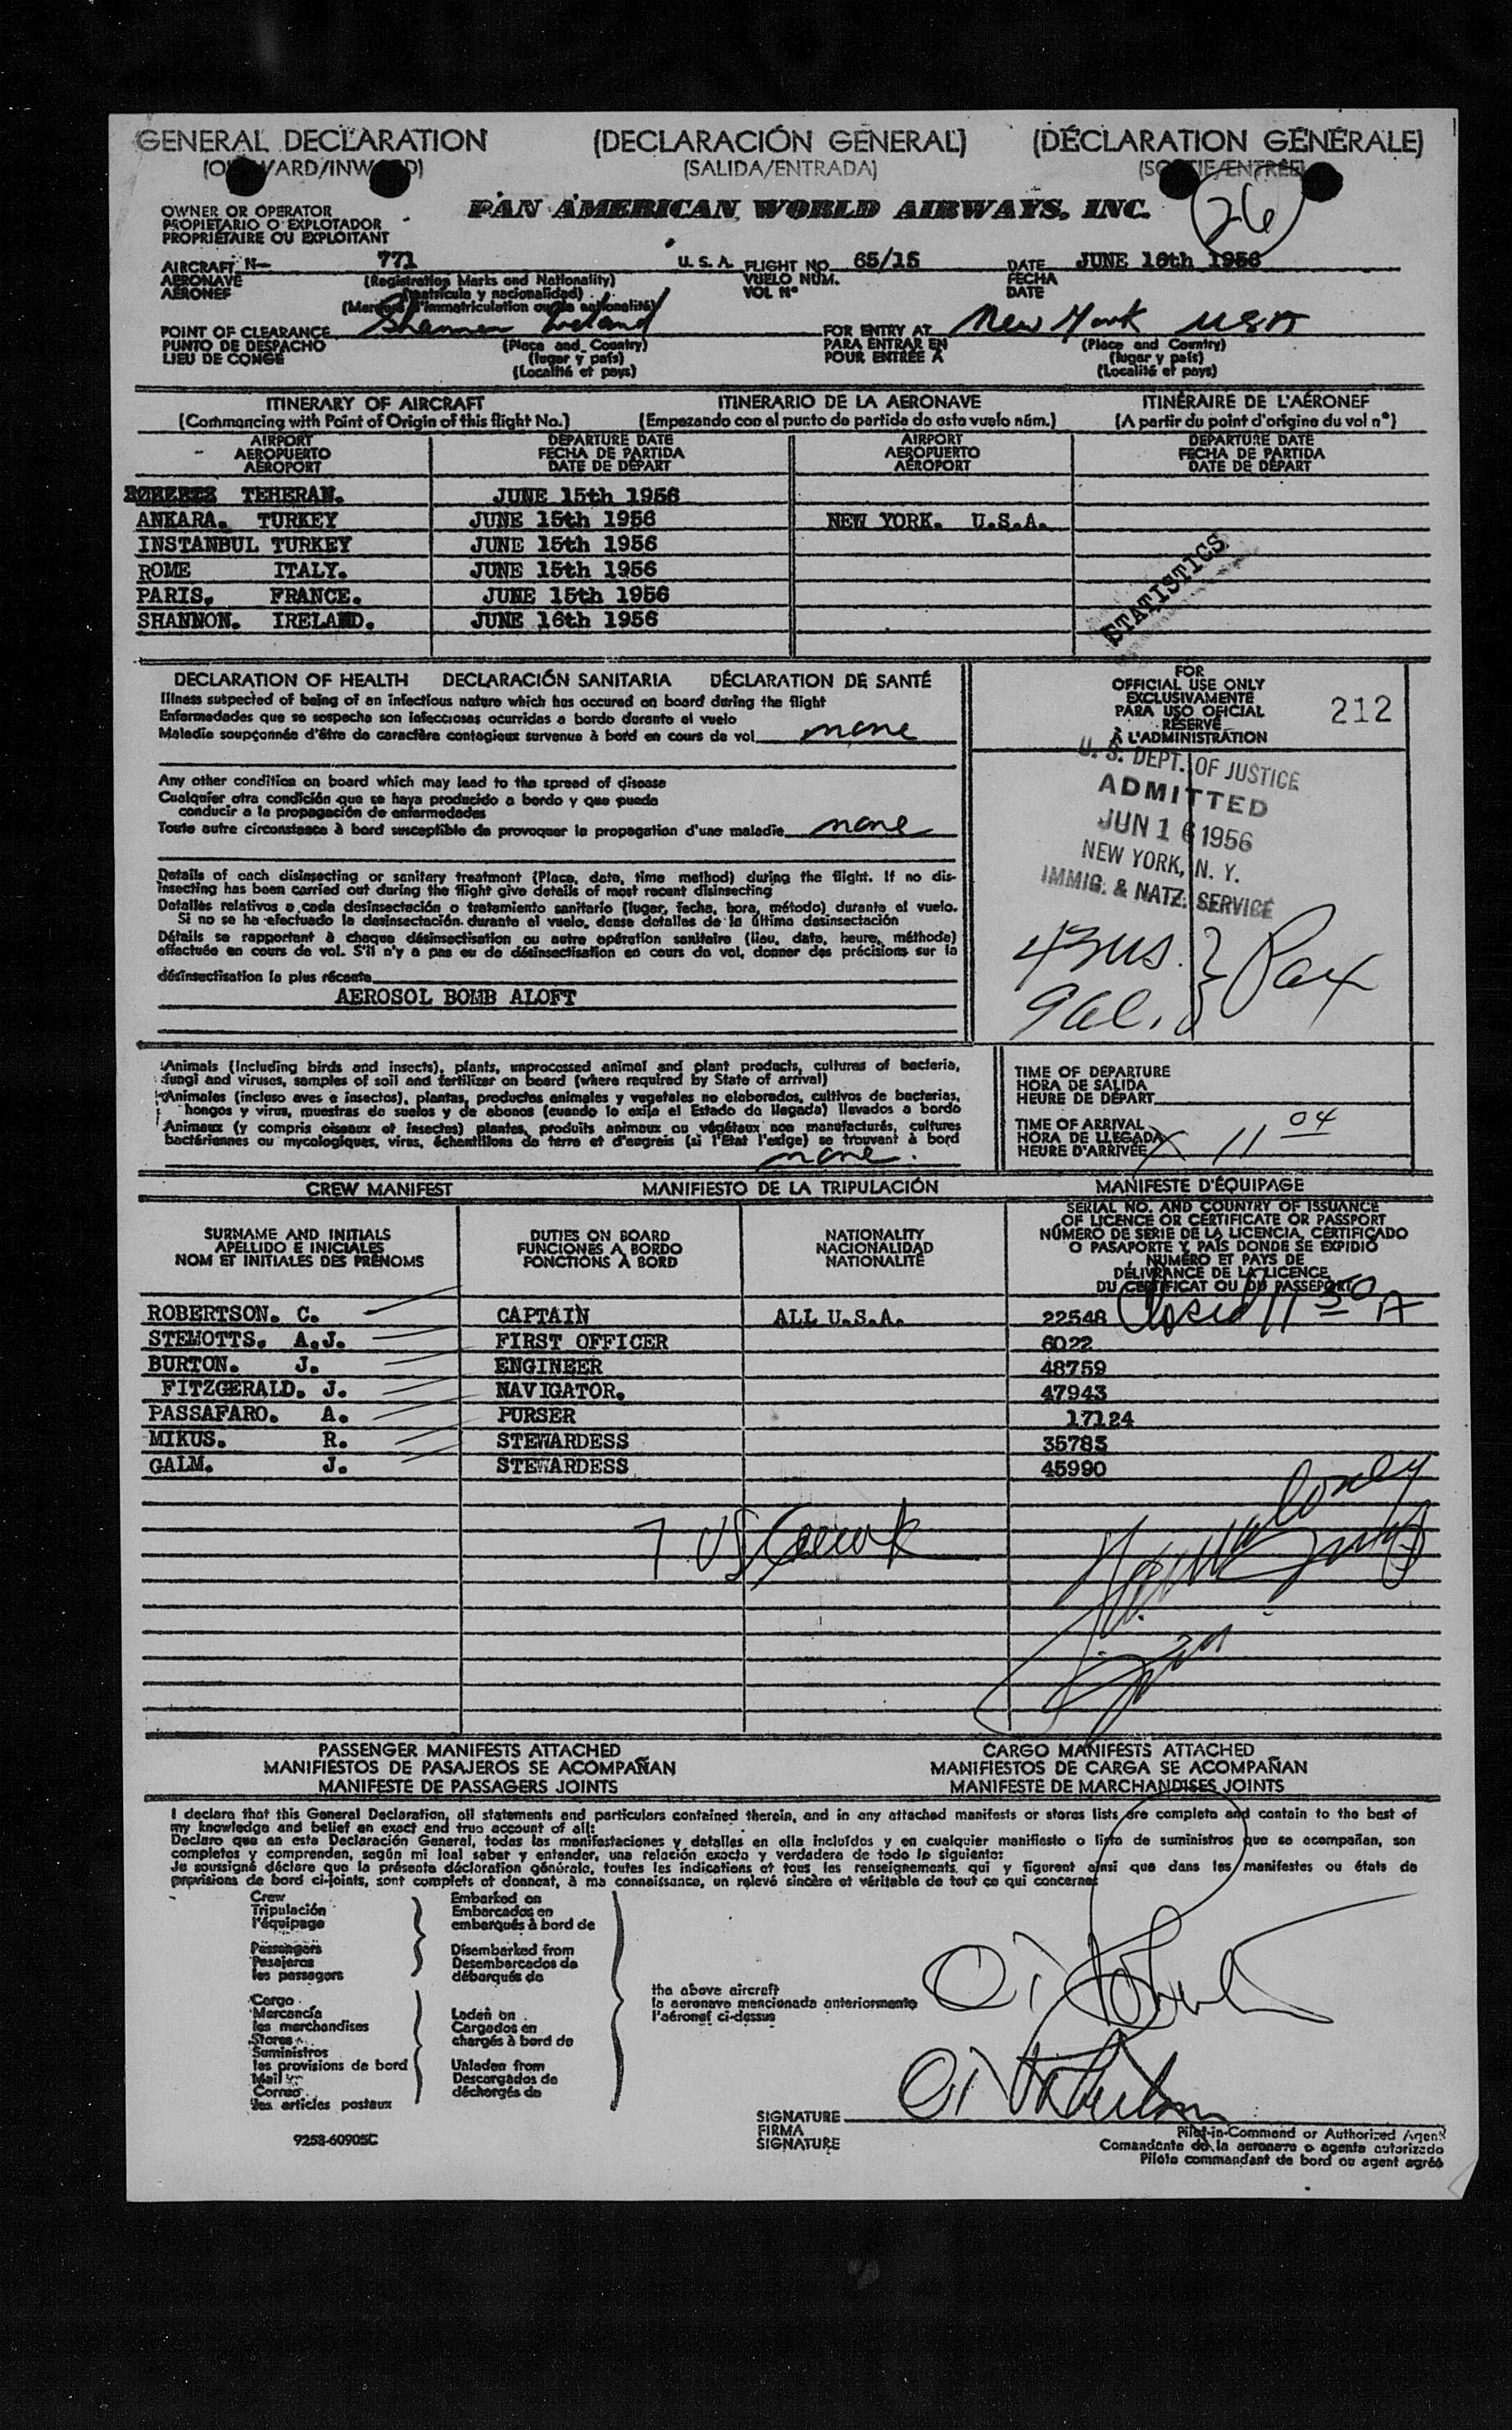 GENERAL DECLARATION (DECLARACIÓN GENERAL) (DÉCLARATION GÉNÉRALE)
(SALIDA/ENTRADA)
26
OWNER OR OPERATOR
PROPIETARIO O EXPLOTADOR
PROPRIÉTAIRE OU EXPLOITANT
PAN AMERICAN WORLD AIRWAYS, INC.
AIRCRAFT N— 771 U.S.A. FLIGHT NO. 65/15 DATE JUNE 16th 1956
AERONAVE (Registration Marks and Nationality) VUELO NÚM. FECHA
AÉRONEF (Matrícula y nacionalidad) VOL N° DATE
POINT OF CLEARANCE Shannon Ireland FOR ENTRY AT New York USA
PUNTO DE DESPACHO (Place and Country) PARA ENTRAR EN (Place and Country)
LIEU DE CONGÉ (lugar y país) POUR ENTRÉE À (lugar y país)
(Localité et pays) (Localité et pays)
ITINERARY OF AIRCRAFT ITINERARIO DE LA AERONAVE ITINÉRAIRE DE L'AÉRONEF
(Commencing with Point of Origin of this flight No.) (Empezando con el punto de partida de este vuelo núm.) (A partir du point d'origine du vol n°)
AIRPORT DEPARTURE DATE AIRPORT DEPARTURE DATE
AEROPUERTO FECHA DE PARTIDA AEROPUERTO FECHA DE PARTIDA
AÉROPORT DATE DE DÉPART AÉROPORT DATE DE DÉPART
TEHERAN. JUNE 15th 1956
ANKARA. TURKEY JUNE 15th 1956 NEW YORK. U.S.A.
INSTANBUL TURKEY JUNE 15th 1956
ROME ITALY. JUNE 15th 1956
PARIS. FRANCE. JUNE 15th 1956
SHANNON. IRELAND. JUNE 16th 1956
STATISTICS
DECLARATION OF HEALTH DECLARACIÓN SANITARIA DÉCLARATION DE SANTÉ
Illness suspected of being of an infectious nature which has occured on board during the flight
Enfermedades que se sospecha son infecciosas ocurridas a bordo durante el vuelo
Maladie soupçonnée d'être de caractère contagieux survenue à bord en cours de vol none
Any other condition on board which may lead to the spread of disease
Cualquier otra condición que se haya producido a bordo y que puede
conducir a la propagación de enfermedades
Toute autre circonstance à bord susceptible de provoquer la propagation d'une maladie none
Details of each disinsecting or sanitary treatment (Place, date, time method) during the flight. If no dis-
insecting has been carried out during the flight give details of most recent disinsecting
Detalles relativos a cada desinsectación o tratamiento sanitario (lugar, fecha, hora, método) durante el vuelo.
Si no se ha efectuado la desinsectación durante el vuelo, dense detalles de la última desinsectación
Détails se rapportant à chaque désinsectisation ou autre opération sanitaire (lieu, date, heure, méthode)
effectuée en cours de vol. S'il n'y a pas eu de désinsectisation en cours de vol, donner des précisions sur la
désinsectisation la plus récente
AEROSOL BOMB ALOFT
FOR
OFFICIAL USE ONLY
EXCLUSIVAMENTE
PARA USO OFICIAL
RÉSERVÉ
À L'ADMINISTRATION
212
U. S. DEPT. OF JUSTICE
ADMITTED
JUN 16 1956
NEW YORK, N. Y.
IMMIG. & NATZ. SERVICE
43 us. } Pax
9 al.
Animals (including birds and insects), plants, unprocessed animal and plant products, cultures of bacteria,
fungi and viruses, samples of soil and fertilizer on board (where required by State of arrival)
Animales (incluso aves e insectos), plantas, productos animales y vegetales no elaborados, cultivos de bacterias,
hongos y virus, muestras de suelos y de abonos (cuando lo exija el Estado de llegada) llevados a bordo
Animaux (y compris oiseaux et insectes) plantes, produits animaux ou végétaux non manufacturés, cultures
bactériennes ou mycologiques, virus, échantillons de terre et d'engrais (si l'Etat l'exige) se trouvant à bord
none.
TIME OF DEPARTURE
HORA DE SALIDA
HEURE DE DÉPART
TIME OF ARRIVAL
HORA DE LLEGADA
HEURE D'ARRIVÉE X 11 04
CREW MANIFEST MANIFIESTO DE LA TRIPULACIÓN MANIFESTE D'ÉQUIPAGE
SURNAME AND INITIALS DUTIES ON BOARD NATIONALITY
APELLIDO E INICIALES FUNCIONES A BORDO NACIONALIDAD
NOM ET INITIALES DES PRÉNOMS FONCTIONS À BORD NATIONALITÉ
SERIAL NO. AND COUNTRY OF ISSUANCE
OF LICENCE OR CERTIFICATE OR PASSPORT
NÚMERO DE SERIE DE LA LICENCIA, CERTIFICADO
O PASAPORTE Y PAÍS DONDE SE EXPIDIÓ
NUMÉRO ET PAYS DE
DÉLIVRANCE DE LA LICENCE
DU CERTIFICAT OU DU PASSEPORT
ROBERTSON. C. CAPTAIN ALL U.S.A. 22548 Closed 11 50 A
STEMOTTS. A.J. FIRST OFFICER 6022
BURTON. J. ENGINEER 48759
FITZGERALD. J. NAVIGATOR. 47943
PASSAFARO. A. PURSER 17124
MIKUS. R. STEWARDESS 35783
GALM. J. STEWARDESS 45990
7 US Crew
PASSENGER MANIFESTS ATTACHED CARGO MANIFESTS ATTACHED
MANIFIESTOS DE PASAJEROS SE ACOMPAÑAN MANIFIESTOS DE CARGA SE ACOMPAÑAN
MANIFESTE DE PASSAGERS JOINTS MANIFESTE DE MARCHANDISES JOINTS
I declare that this General Declaration, all statements and particulars contained therein, and in any attached manifests or stores lists are complete and contain to the best of
my knowledge and belief an exact and true account of all:
Declaro que en esta Declaración General, todas las manifestaciones y detalles en ella incluídos y en cualquier manifiesto o lista de suministros que se acompañan, son
completos y comprenden, según mi leal saber y entender, una relación exacta y verdadera de todo lo siguiente:
Je soussigné déclare que la présente déclaration générale, toutes les indications et tous les renseignements qui y figurent ainsi que dans les manifestes ou états de
provisions de bord ci-joints, sont complets et donnent, à ma connaissance, un relevé sincère et véritable de tout ce qui concerne:
Crew Embarked on
Tripulación Embarcados en
l'équipage embarqués à bord de
Passengers Disembarked from
Pasajeros Desembarcados de
les passagers débarqués de
the above aircraft
la aeronave mencionada anteriormente
l'aéronef ci-dessus
Cargo
Mercancía Laden on
les marchandises Cargados en
Stores chargés à bord de
Suministros
les provisions de bord Unladen from
Mail Descargados de
Correo déchargés de
les articles postaux
SIGNATURE
FIRMA
SIGNATURE
Pilot-in-Command or Authorized Agent
Comandante de la aeronave o agente autorizado
Pilote commandant de bord ou agent agréé
9258-60905C